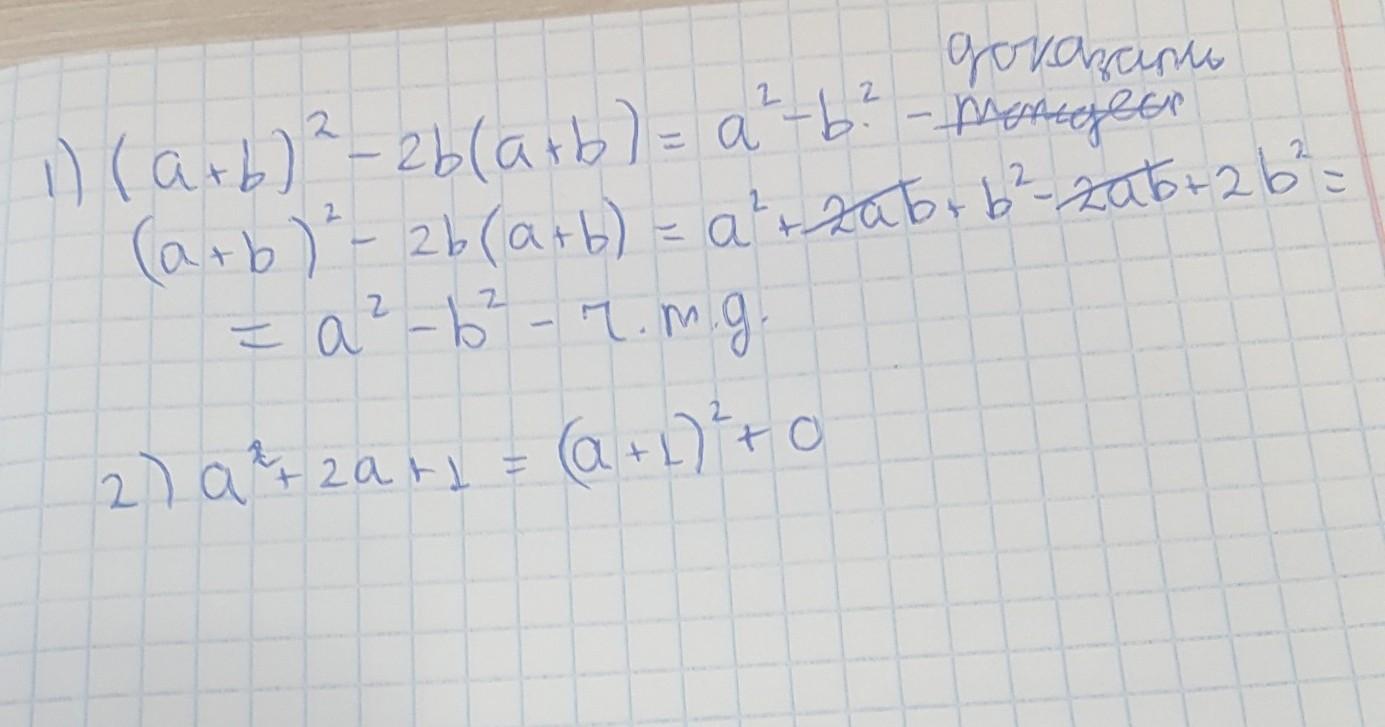 доказати
1) (a+b)² - 2b(a+b) = a² - b². -
(a+b)² - 2b(a+b) = a² + 2ab + b² - 2ab + 2b² =
= a² - b² - ч.т.д.
2) a² + 2a + 1 = (a+1)² + 0